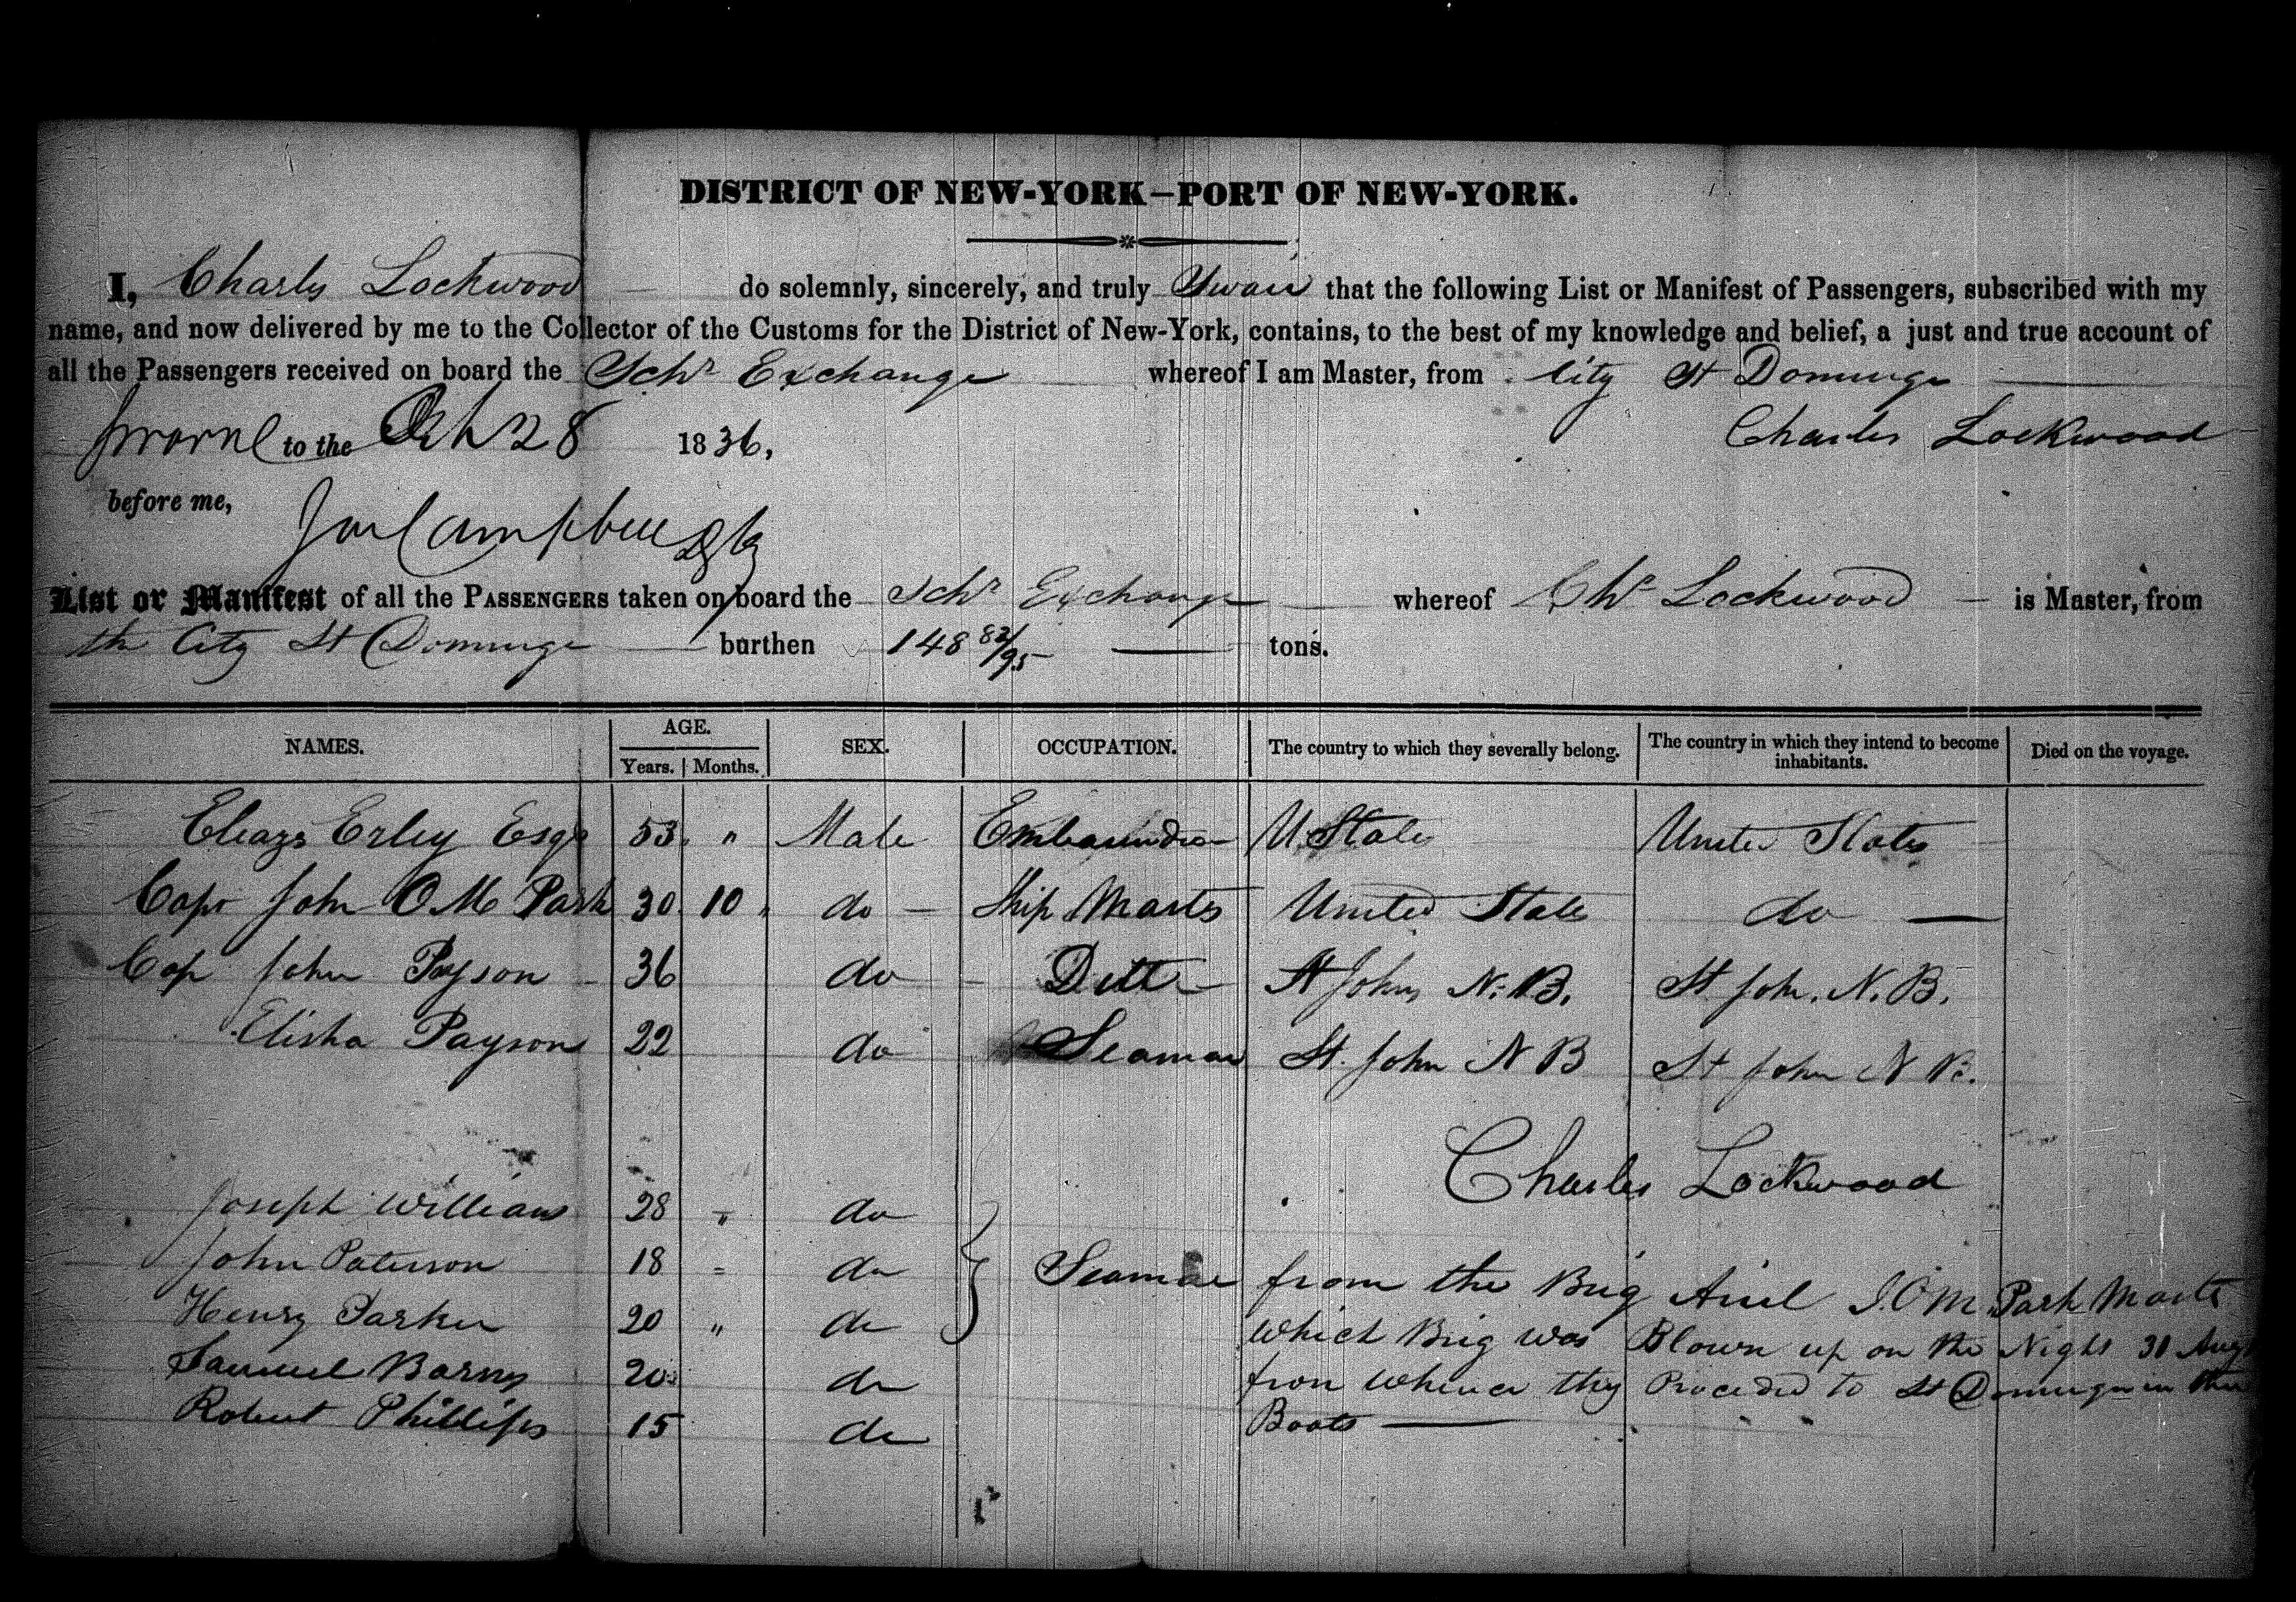 DISTRICT OF NEW-YORK—PORT OF NEW-YORK.
I, Charles Lockwood do solemnly, sincerely, and truly Swear that the following List or Manifest of Passengers, subscribed with my
name, and now delivered by me to the Collector of the Customs for the District of New-York, contains, to the best of my knowledge and belief, a just and true account of
all the Passengers received on board the Schr Exchange whereof I am Master, from City St Domingo
Sworne to the Oct 28 1836, Charles Lockwood
before me,
Campbell
List or Manifest of all the PASSENGERS taken on board the Schr Exchange whereof Chs Lockwood is Master, from
the City St Domingo burthen 148 82/95 tons.
NAMES. AGE. SEX. OCCUPATION. The country to which they severally belong. The country in which they intend to become inhabitants. Died on the voyage.
Years. Months.
Erley Esqr 53 " Male U States United States
Capt John O M Park 30 10 " do Ship Master United States do
Cap John Payson 36 do Ditto St Johns N. B. St John. N. B.
Elisha Payson 22 do Seaman St. John N B St John N B.
Charles Lockwood
Joseph Williams 28 " do
John Paterson 18 = do Seamen from the Brig Ariel J. O M. Park Master
Henry Parker 20 " do which Brig was Blown up on the Night 31 Augt
Samuel Barns 20 do from whence they Proceded to St Domingo in their
Robert Phillips 15 do Boats